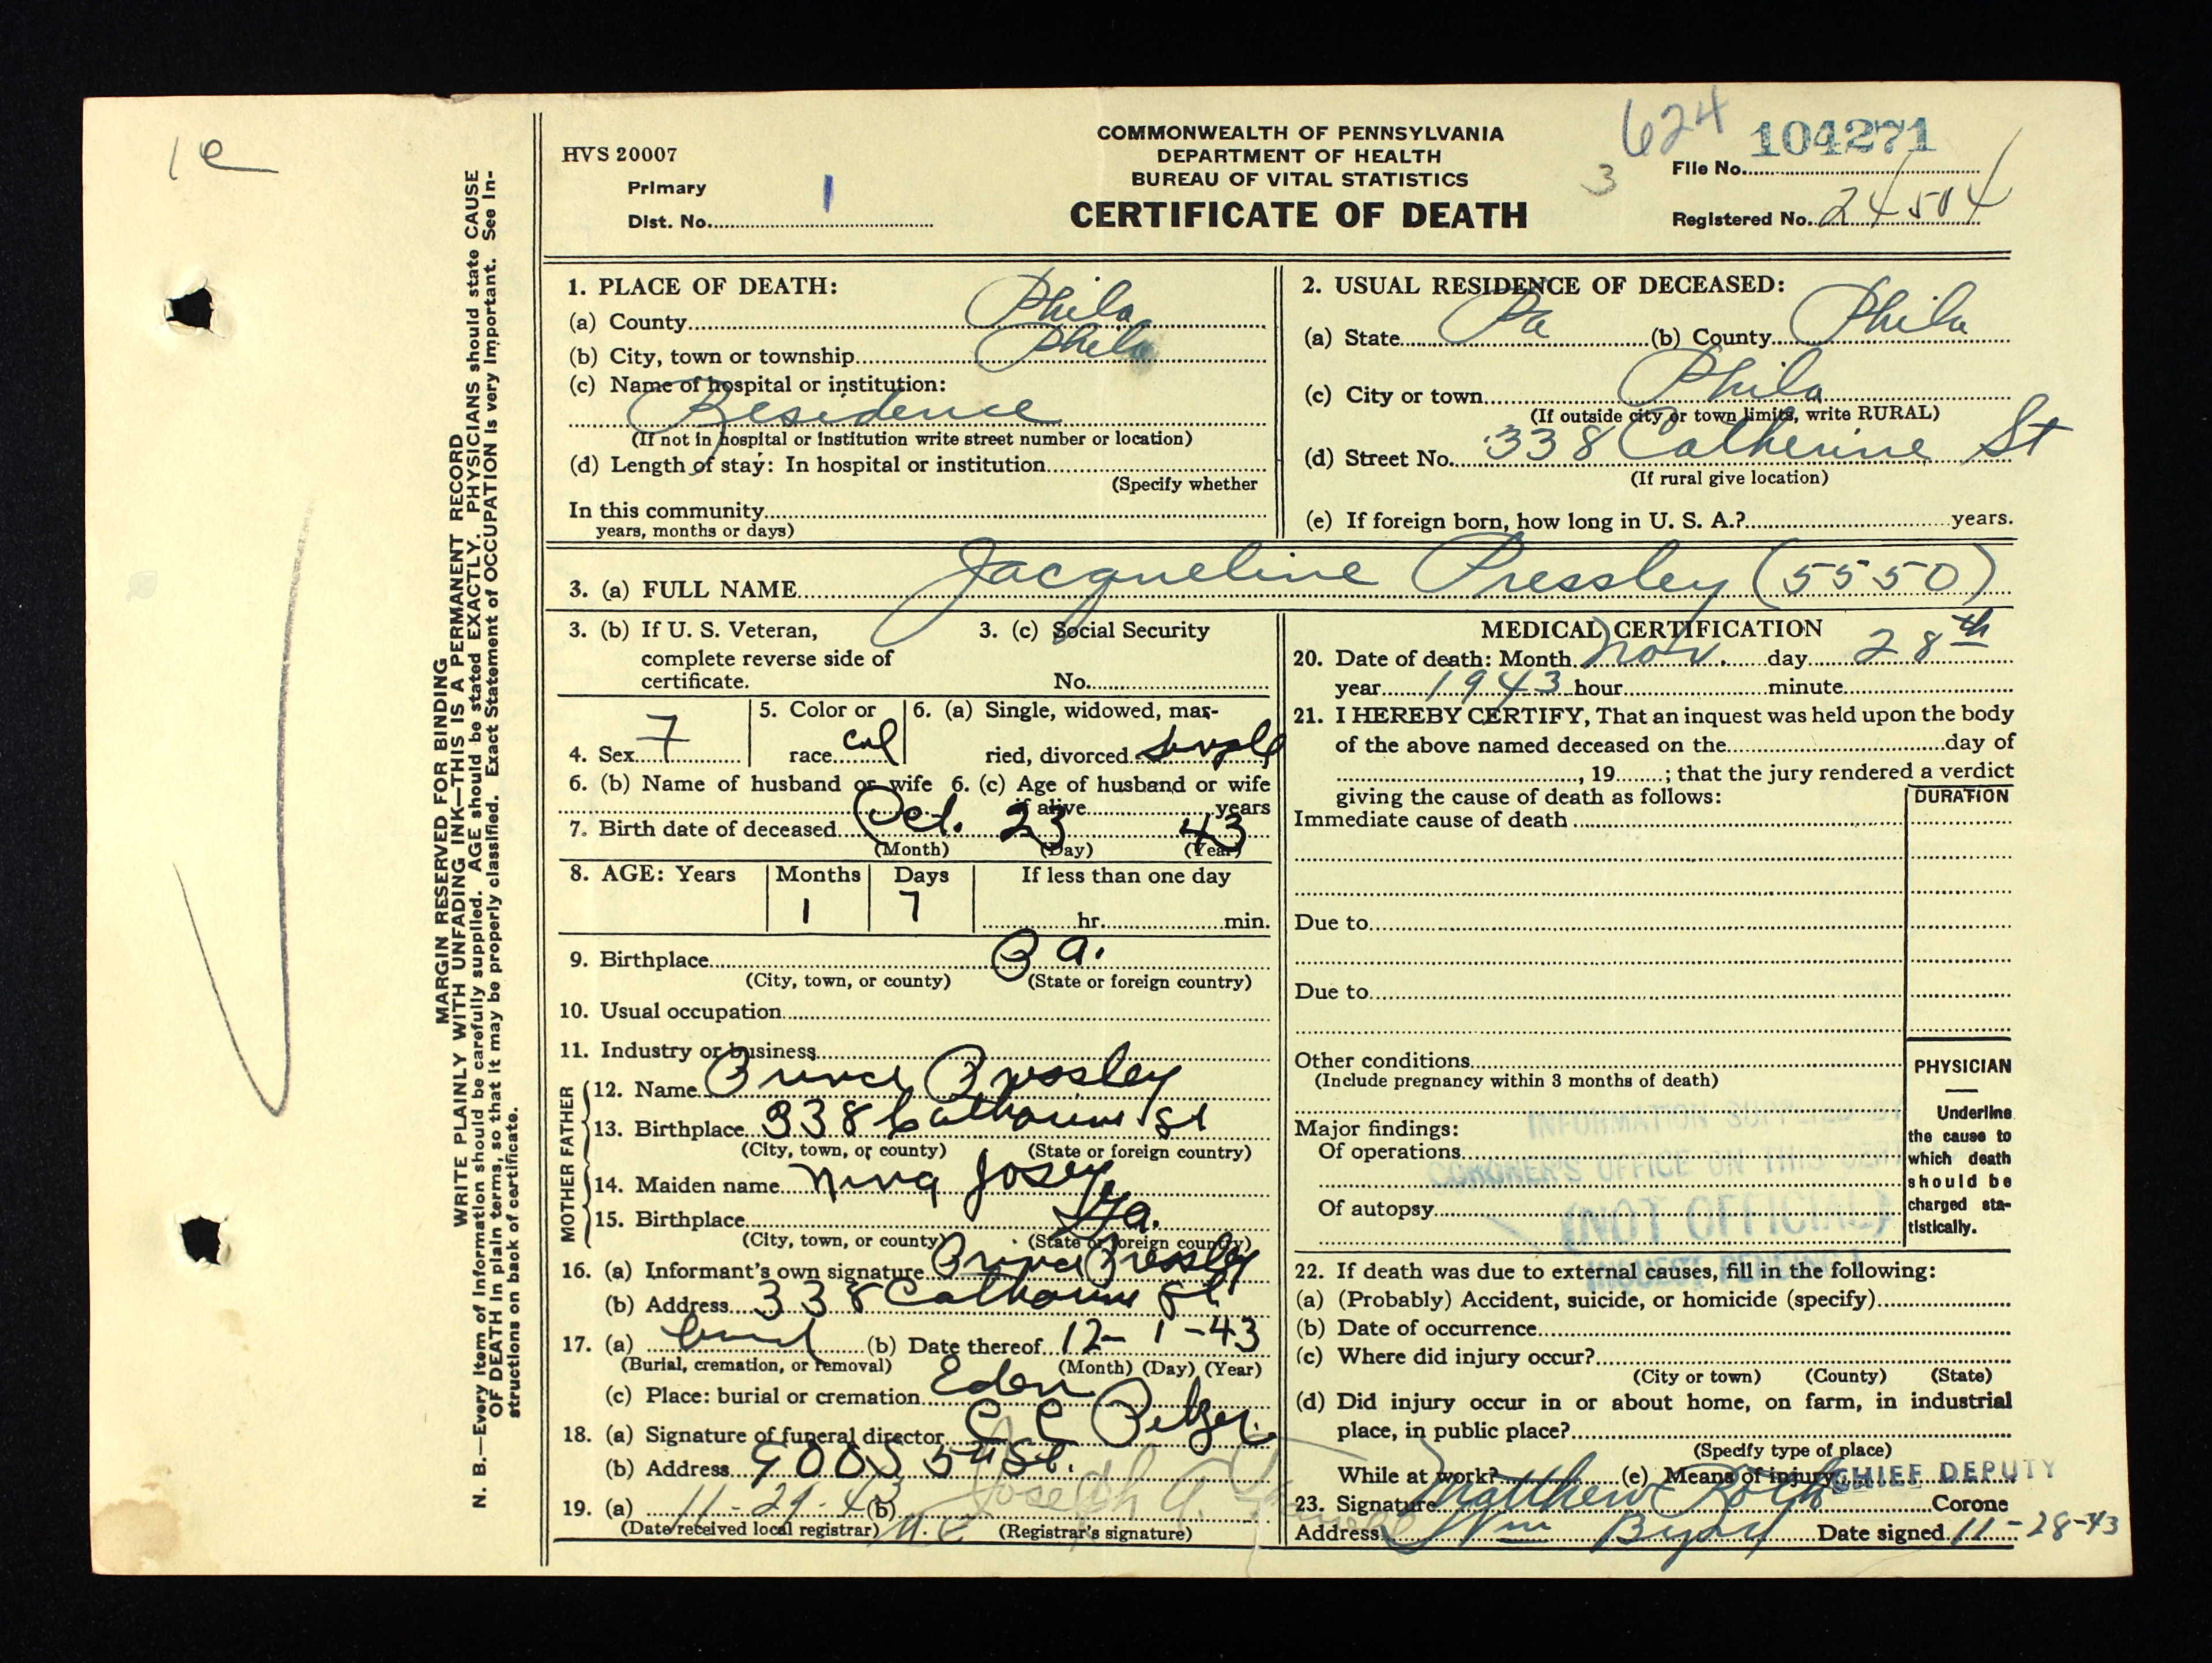 1 e
MARGIN RESERVED FOR BINDING
WRITE PLAINLY WITH UNFADING INK—THIS IS A PERMANENT RECORD
N. B.—Every item of information should be carefully supplied. AGE should be stated EXACTLY. PHYSICIANS should state CAUSE
OF DEATH in plain terms, so that it may be properly classified. Exact Statement of OCCUPATION is very important. See In-
structions on back of certificate.
HVS 20007
Primary
Dist. No. 1
COMMONWEALTH OF PENNSYLVANIA
DEPARTMENT OF HEALTH
BUREAU OF VITAL STATISTICS
CERTIFICATE OF DEATH
624
3
File No. 104271
Registered No. 24504
1. PLACE OF DEATH:
(a) County Phila
(b) City, town or township Phila
(c) Name of hospital or institution:
Residence
(If not in hospital or institution write street number or location)
(d) Length of stay: In hospital or institution
(Specify whether
In this community
years, months or days)
2. USUAL RESIDENCE OF DECEASED:
(a) State Pa (b) County Phila
(c) City or town Phila
(If outside city or town limits, write RURAL)
(d) Street No. 338 Catherine St
(If rural give location)
(e) If foreign born, how long in U. S. A.? years.
3. (a) FULL NAME Jacqueline Pressley (5550)
3. (b) If U. S. Veteran,
complete reverse side of
certificate.
3. (c) Social Security
No.
4. Sex F
5. Color or
race col
6. (a) Single, widowed, mar-
ried, divorced single
6. (b) Name of husband or wife
6. (c) Age of husband or wife
if alive years
7. Birth date of deceased Oct. 23 43
(Month) (Day) (Year)
8. AGE: Years Months Days If less than one day
1 7 hr. min.
9. Birthplace Pa.
(City, town, or county) (State or foreign country)
10. Usual occupation
11. Industry or business
FATHER
12. Name Prince Pressley
13. Birthplace 338 Catharine St
(City, town, or county) (State or foreign country)
MOTHER
14. Maiden name Nina Josey
15. Birthplace Ga.
(City, town, or county) (State or foreign country)
16. (a) Informant's own signature Prince Pressley
(b) Address 338 Catharine St
17. (a) burial (b) Date thereof 12-1-43
(Burial, cremation, or removal) (Month) (Day) (Year)
(c) Place: burial or cremation Eden
18. (a) Signature of funeral director C C
(b) Address 900 S 5th St.
19. (a) 11-29-43 (b) Joseph A.
(Date received local registrar) (Registrar's signature)
MEDICAL CERTIFICATION
20. Date of death: Month Nov. day 28th
year 1943 hour minute
21. I HEREBY CERTIFY, That an inquest was held upon the body
of the above named deceased on the day of
, 19 ; that the jury rendered a verdict
giving the cause of death as follows:
DURATION
Immediate cause of death
Due to
Due to
Other conditions
(Include pregnancy within 3 months of death)
Major findings:
Of operations
Of autopsy
PHYSICIAN
Underline
the cause to
which death
should be
charged sta-
tistically.
INFORMATION SUPPLIED BY
CORONER'S OFFICE ON THIS CERT
(NOT OFFICIAL)
INQUEST PENDING
22. If death was due to external causes, fill in the following:
(a) (Probably) Accident, suicide, or homicide (specify)
(b) Date of occurrence
(c) Where did injury occur?
(City or town) (County) (State)
(d) Did injury occur in or about home, on farm, in industrial
place, in public place?
(Specify type of place)
While at work? (e) Means of injury
CHIEF DEPUTY
23. Signature Matthew Roth Corone
Address Date signed 11-28-43